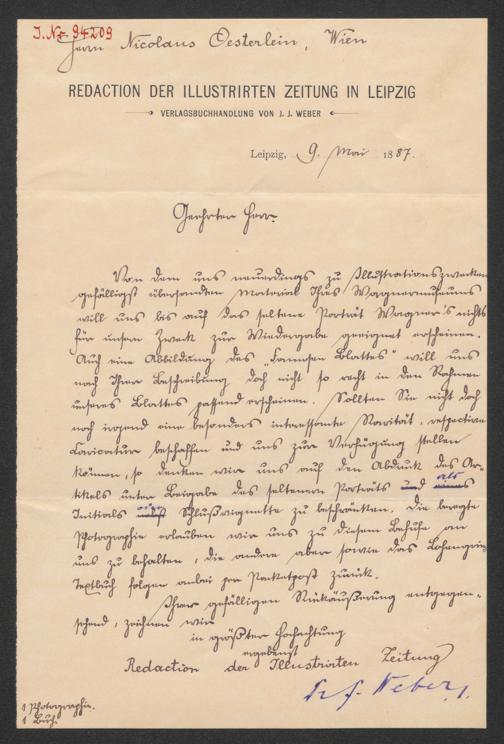 J. Nr. 94209
Herrn Nicolaus Oesterlein, Wien
REDACTION DER ILLUSTRIRTEN ZEITUNG IN LEIPZIG
VERLAGSBUCHHANDLUNG VON J. J. WEBER
Leipzig, 9. Mai 1887.
Geehrter Herr.
Von dem uns neuerdings zu Illustrationszwecken
gefälligst übersandten Material Ihres Wagnermuseums
will uns bis auf das seltene Porträt Wagner's nichts
für unsern Zweck zur Wiedergabe geeignet erscheinen.
Auch eine Abbildung des „Famosen Blattes" will uns
nach Ihrer Beschreibung doch nicht so recht in den Rahmen
unseres Blattes passend erscheinen. Sollten Sie nicht doch
noch irgend eine besonders interessante Rarität, respective
Caricatur beschaffen und uns zur Verfügung stellen
können, so denken wir uns auf den Abdruck des Ar-
tikels unter Beigabe des seltenen Porträts als
Initials Schlußvignette zu beschränken. Die besagte
Photographie erlauben wir uns zu diesem Behufe an
uns zu behalten, die andere aber sowie das Lohengrin
Textbuch folgen anbei per Packetpost zurück.
Ihrer gefälligen Rückäußerung entgegen-
sehend, zeichnen wir
in größter Hochachtung
ergebenst
Redaction der Illustrirten Zeitung
Weber
1 Photographie.
1 Buch.